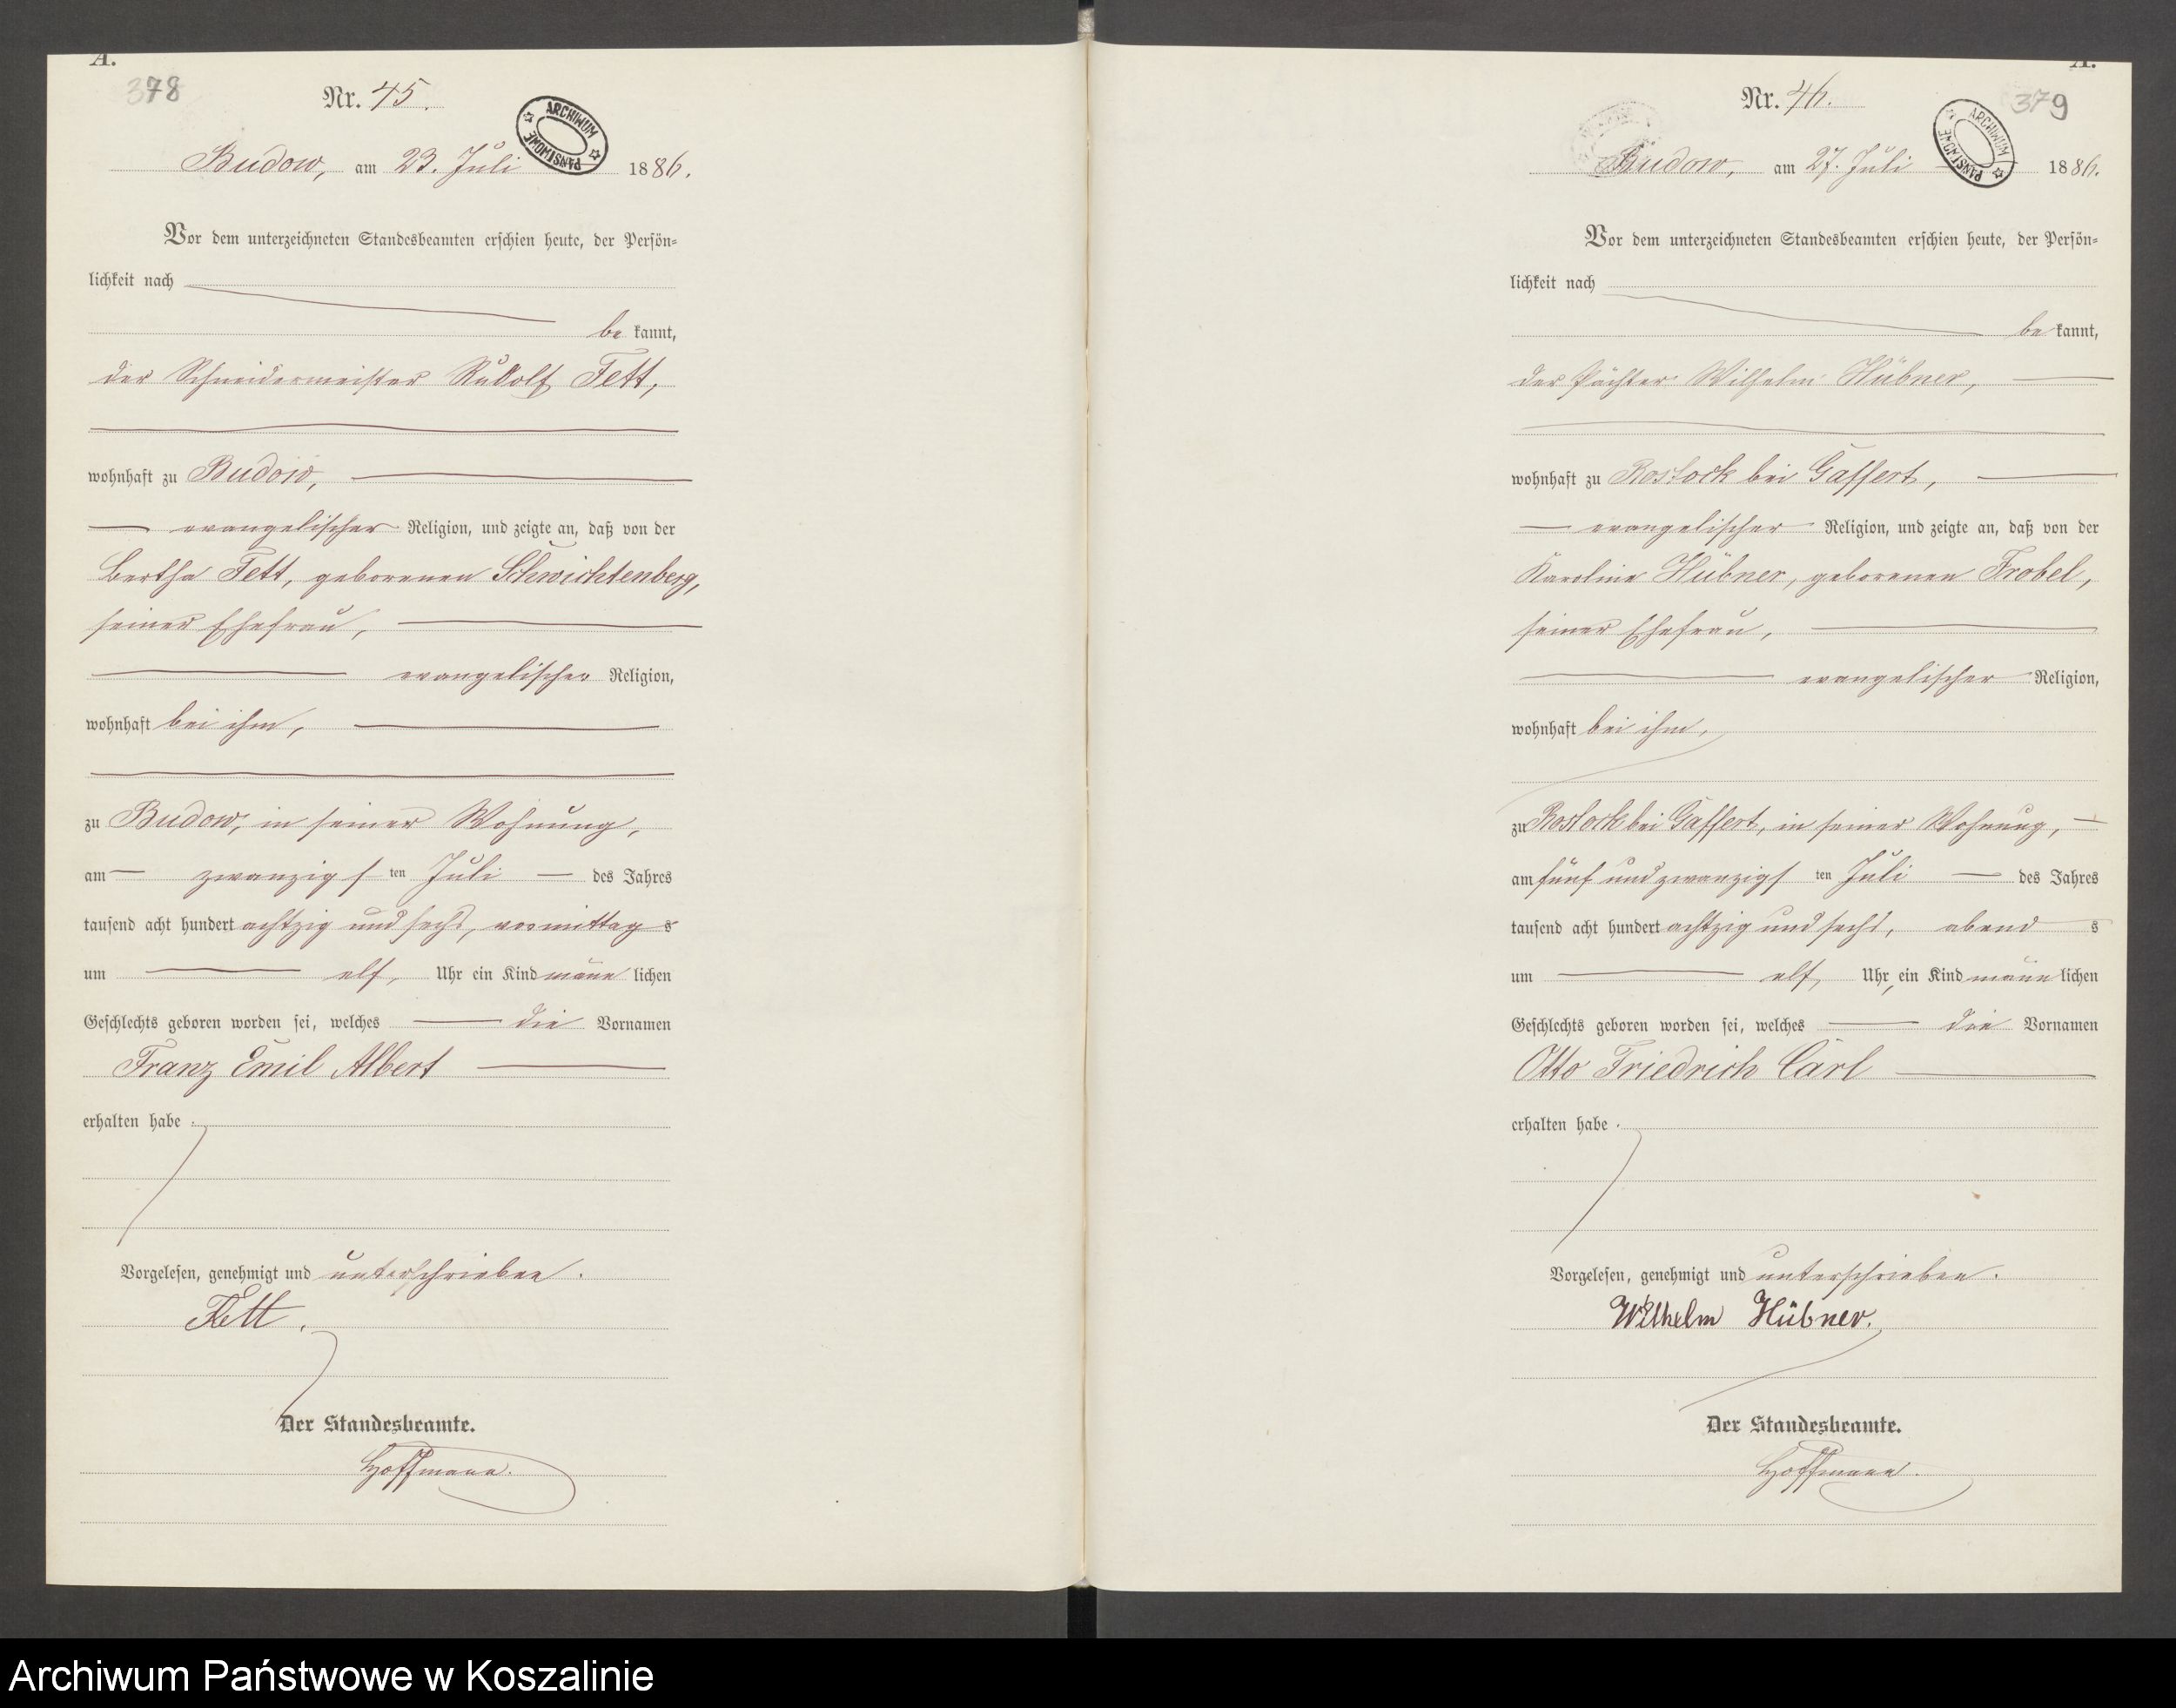 A.
378
Nr. 45.
ARCHIWUM PAŃSTWOWE
Budow, am 23. Juli 1886.
Vor dem unterzeichneten Standesbeamten erschien heute, der Persön=
lichkeit nach
be kannt,
der Schneidermeister Rudolf Fett,
wohnhaft zu Budow,
evangelischer Religion, und zeigte an, daß von der
Bertha Fett, geborenen Schwichtenberg,
seiner Ehefrau,
evangelischer Religion,
wohnhaft bei ihm,
zu Budow, in seiner Wohnung,
am zwanzigs ten Juli des Jahres
tausend acht hundert achtzig und sechs, vormittag s
um elf, Uhr ein Kind männ lichen
Geschlechts geboren worden sei, welches die Vornamen
Franz Emil Albert
erhalten habe.
Vorgelesen, genehmigt und unterschrieben.
Fett.
Der Standesbeamte.
Hoffmann.
A.
379
Nr. 46.
ARCHIWUM PAŃSTWOWE
Budow, am 27. Juli 1886.
Vor dem unterzeichneten Standesbeamten erschien heute, der Persön=
lichkeit nach
be kannt,
der Pächter Wilhelm Hübner,
wohnhaft zu Rostock bei Gaffert,
evangelischer Religion, und zeigte an, daß von der
Karoline Hübner, geborenen Frobel,
seiner Ehefrau,
evangelischer Religion,
wohnhaft bei ihm,
zu Rostock bei Gaffert, in seiner Wohnung,
am fünf und zwanzigs ten Juli des Jahres
tausend acht hundert achtzig und sechs, abend s
um elf, Uhr, ein Kind männ lichen
Geschlechts geboren worden sei, welches die Vornamen
Otto Friedrich Carl
erhalten habe.
Vorgelesen, genehmigt und unterschrieben.
Wilhelm Hübner.
Der Standesbeamte.
Hoffmann.
Archiwum Państwowe w Koszalinie